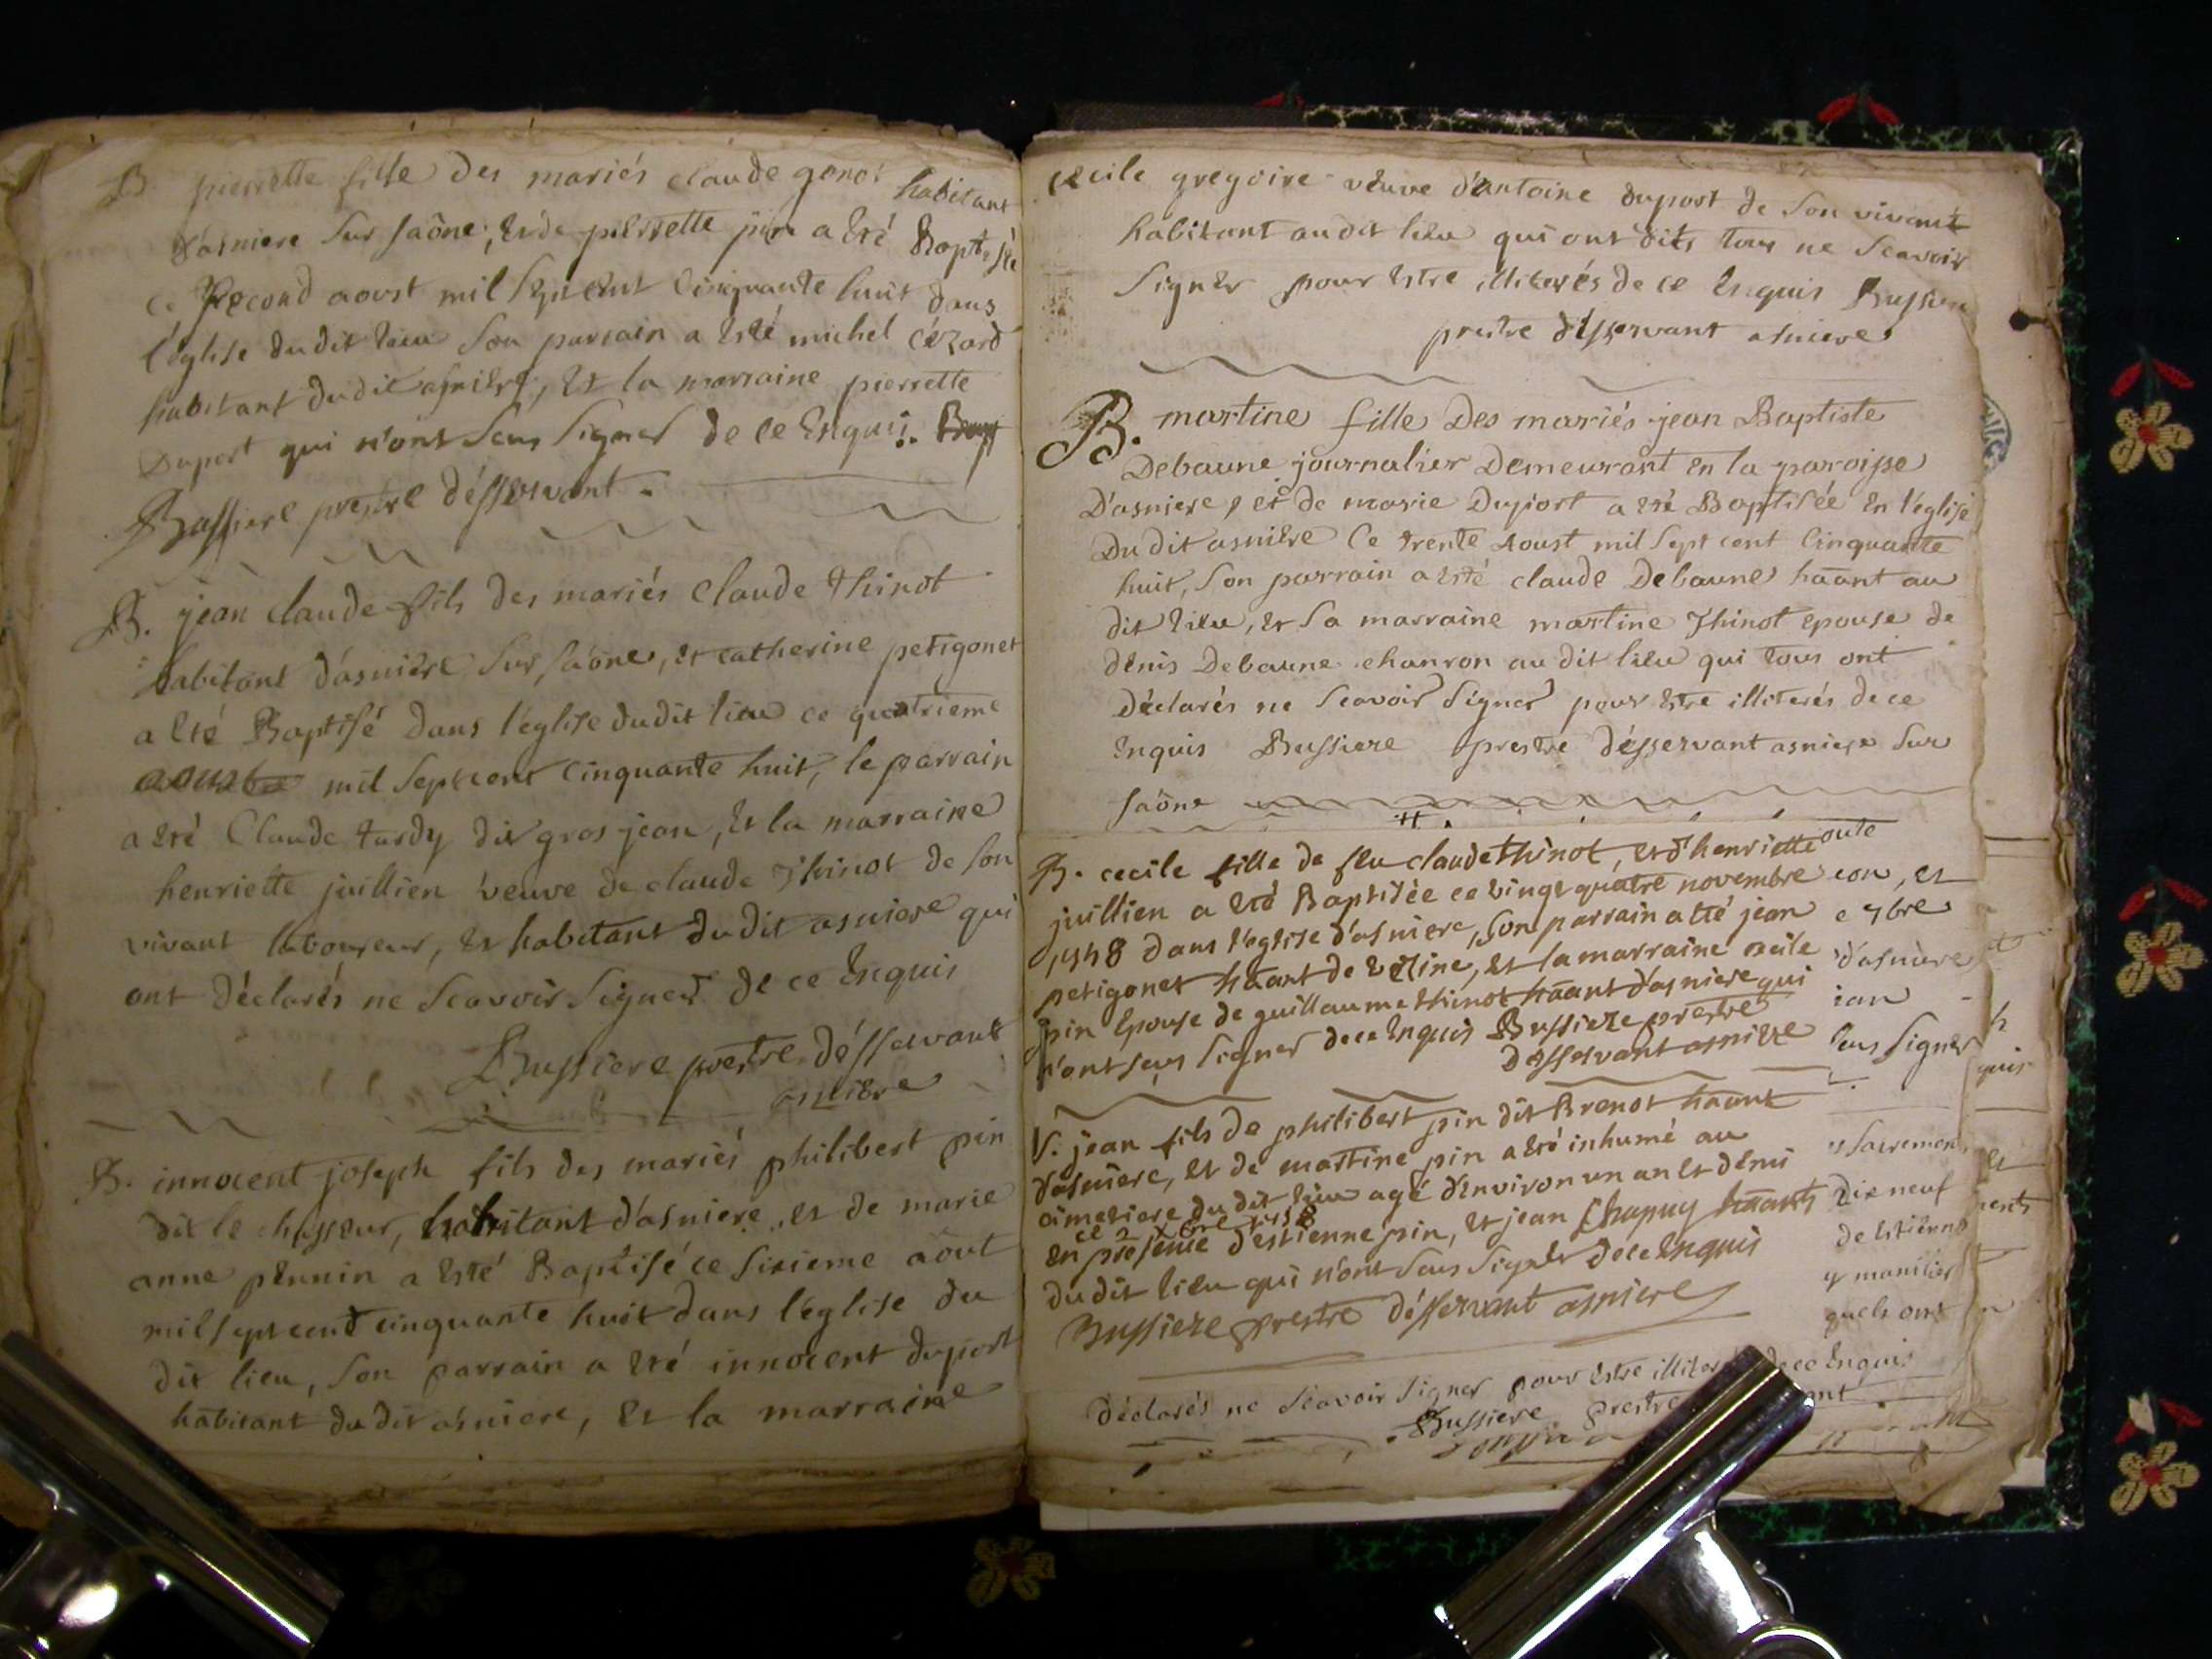 B. pierrette fille des mariés claude gonot habitant
d'asniere sur saône, et de pierrette pin a eté Baptisée
ce second aoust mil sept cent cinquante huit dans
l'église du dit lieu son parrain a esté michel cézard
habitant du dit asniere, et la marraine pierrette
Duport qui n'ont sçus signer de ce enquis.
Bussiere prestre désservant.
B. jean claude fils des mariés claude thinot
habitant d'asniere sur saône, et catherine petigonet
a eté Baptisé dans l'église du dit lieu ce quatrieme
aoust mil sept cent cinquante huit, le parrain
a eté Claude tardy dit gros jean, et la marraine
henriette juillien veuve de claude thinot de son
vivant laboureur, et habitant du dit asniere qui
ont déclarés ne scavoir signer de ce enquis
Bussiere prestre désservant
asniere
B. innocent joseph fils des mariés philibert pin
dit le chasseur, habitant d'asniere, et de marie
anne pennin a esté Baptisé ce sixieme aôut
mil sept cent cinquante huit dans l'église du
dit lieu, son parrain a eté innocent duport
habitant du dit asniere, et la marraine
cecile gregoire veuve d'antoine duport de son vivant
habitant au dit lieu qui ont dits tous ne scavoir
signer pour estre illiterés de ce enquis Bussiere
prestre désservant asniere
B. martine fille des mariés jean Baptiste
Debaune journalier Demeurant en la paroisse
D'asniere, et de marie Duport a eté Baptisée en l'église
Du dit asniere Ce trente Aoust mil sept cent cinquante
huit, son parrain a esté claude Debaune haant au
dit lieu, et sa marraine martine thinot epouse de
denis Debaune chanron au dit lieu qui tous ont
Déclarés ne scavoir signer pour estre illiterés de ce
enquis Bussiere prestre désservant asniere sur
saône
B. cecile fille de feu claude thinot, et d'henriette
juillien a eté Baptisée ce vingt quatre novembre
1758 dans l'eglise d'asniere, son parrain a eté jean
petigonet haant de vésine, et la marraine cecile
pin epouse de guillaume thinot haant d'asniere qui
n'ont sçus signer de ce enquis Bussiere prestre
desservant asniere
S. jean fils de philibert pin dit Brenot haant
d'asniere, et de martine pin a eté inhumé au
cimetiere du dit lieu agé d'environ un an et demi
ce 2 xbre 1758
en présence d'estienne pin, et jean Chapuy haants
du dit lieu qui n'ont sçus signer de ce enquis
Bussiere prestre désservant asniere
oute
con, et
e 7bre
d'asniere
ian
sçus signer
quis
s sacremens
dix neuf
de estienne
y manilier
quels ont
déclarés ne scavoir signer pour estre de ce enquis
Bussiere prestre